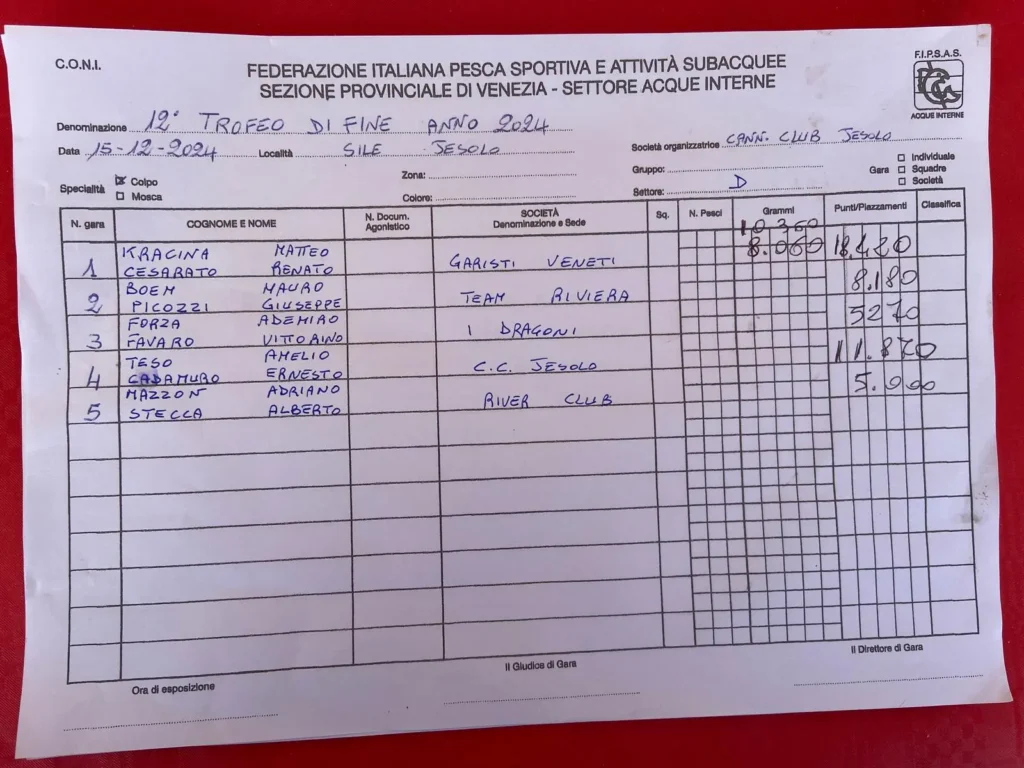 C.O.N.I.
FEDERAZIONE ITALIANA PESCA SPORTIVA E ATTIVITÀ SUBACQUEE
SEZIONE PROVINCIALE DI VENEZIA - SETTORE ACQUE INTERNE
F.I.P.S.A.S.
ACQUE INTERNE
Denominazione 12° TROFEO DI FINE ANNO 2024
Data 15-12-2024 Località SILE JESOLO Società organizzatrice CANN. CLUB JESOLO
Specialità Colpo Zona: Gruppo: Gara Individuale
Squadre
Mosca Colore: Settore: D Società
N. gara COGNOME E NOME N. Docum. Agonistico SOCIETÀ Denominazione e Sede Sq. N. Pesci Grammi Punti/Piazzamenti Classifica
10 360
1 KRACINA MATTEO GARISTI VENETI 8.060 18.420
CESARATO RENATO
2 BOEM MAURO TEAM RIVIERA 8.180
PICOZZI GIUSEPPE
3 FORZA ADEMIRO I DRAGONI 5270
FAVARO VITTORINO
4 TESO AMELIO C.C. JESOLO 11.870
CADAMURO ERNESTO
5 MAZZON ADRIANO RIVER CLUB 5.000
STECCA ALBERTO
Ora di esposizione Il Giudice di Gara Il Direttore di Gara